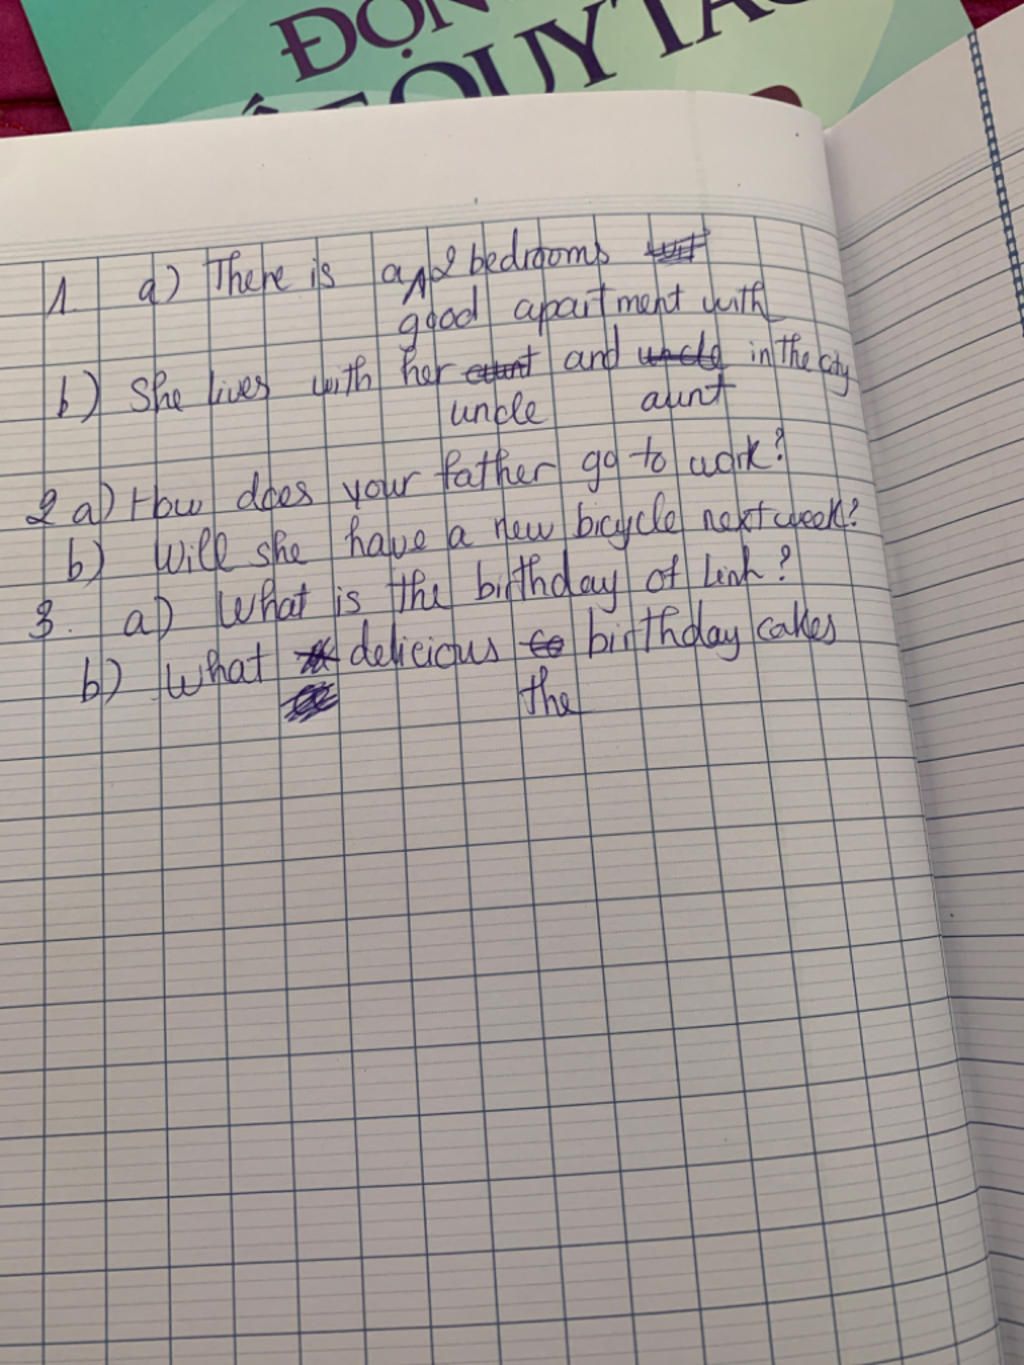 ĐỘN
QUY TẮC
1. a) There is a 2 bedrooms
good apartment with
b) She lives with her aunt and uncle in the city
uncle aunt
2 a) How does your father go to work?
b) Will she have a new bicycle next week?
3. a) What is the birthday of Linh?
b) What delicious birthday cakes
the